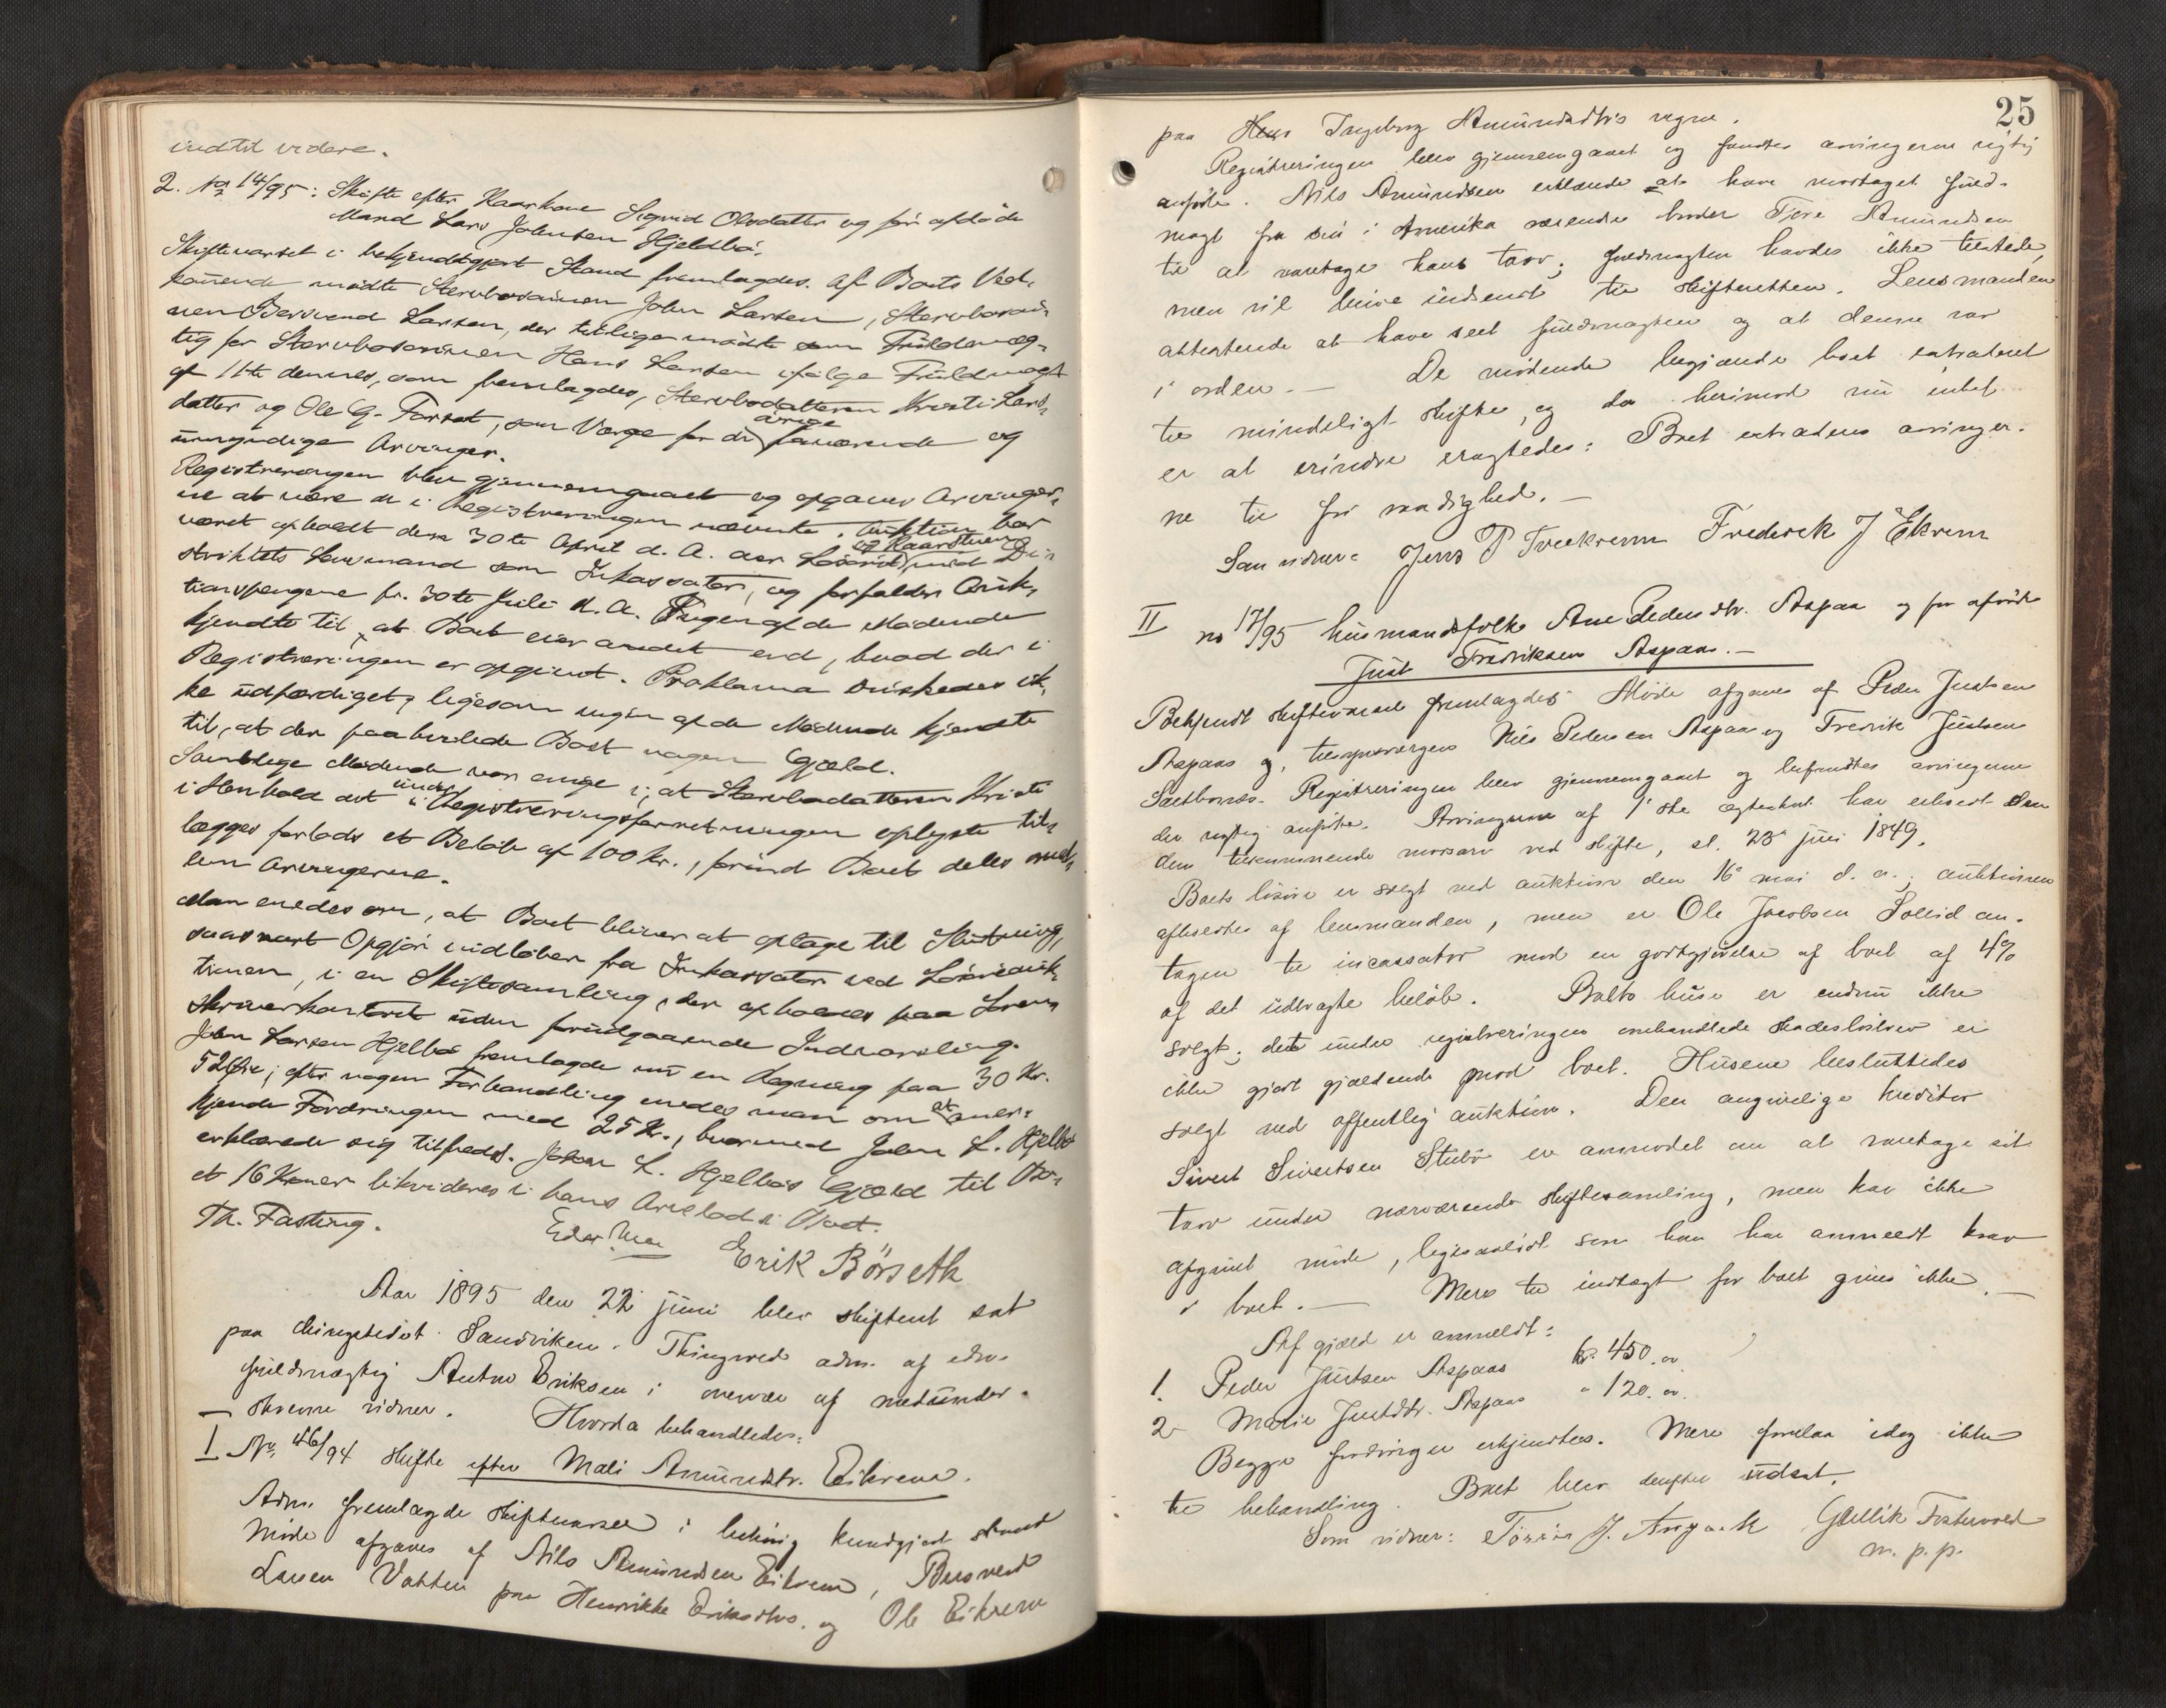 indtil videre.
2. No 14/95: Skifte efter Kaarkone Sigrid Olsdatter og før afdøde
Mand Lars Johnsen Hjelbø.
Skiftevarsel i bekjendtgjort Stand fremlagdes. Af Boets Ved-
kommende mødte Stervbosønnen John Larsen, Stervbosøn-
nen Larsen, der tillige mødte som Fuldmæg-
tig for Stervbosønnen Hans Larsen ifølge Fuldmagt
af 11te dennes, som fremlagdes, Stervbodatteren Kristi Lars-
datter og Ole G. Farset, som Værge for de øvrige fraværende og
umyndige Arvinger.
Registreringen blev gjennemgaaet og opgaves Arvinger-
ne at være de i Registreringen nævnte. Auktion har
været afholdt den 30te April d. A. over Løsøret og Kaarstuen med Di-
striktets Lensmand som Inkassator, og forfalder Auk-
tionspengene pr. 30te Juli d. A. Ingen af de Mødende
kjendte til, at Boet eier andet end, hvad der i
Registreringen er opgivet. Proklama ønskedes ik-
ke udfærdiget, ligesom ingen af de Mødende kjendte
til, at der paahvilede Boet nogen Gjæld.
Samtlige Mødende var enige i, at Stervbodatteren Kristi
i Henhold det under Registreringsforretningen oplyste til-
lægges forlods et Beløb af 100 kr., forind Boet deles mel-
lem Arvingerne.
Man enedes om, at Boet bliver at optage til Slutning,
saasnart Opgjør indløber fra Inkassator ved Løsøreauk-
tionen, i en Skiftesamling, der afholdes paa Soren-
skriverkontoret uden forudgaaende Indvarsling.
John Larsen Hjelbø fremlagde nu en Regning paa 30 Kr.
52 Øre; efter nogen Forhandling enedes man om at aner-
kjende Fordringen med 25 Kr., hvormed John L. Hjelbø
erklærede sig tilfreds. John L. Hjelbøs Gjæld til Bo-
et 16 Kroner likvideres i hans Arvelod i Boet.
Th. Fasting.
Erik Börseth
Aar 1895 den 22 juni blev skifteret sat
paa thingstedet Sandviken. Thinget adm. af edsv.
fuldmægtig Anton Eriksen i overvær af medunder-
skrevne vidner. Hvorda behandledes:
I No. 46/94 Skifte efter Mali Amundsdtr. Eikrem.
Adm. fremlagde skiftevarsel i behørig kundgjort stand
Møde afgaves af Nils Amundsen Eikrem,
Larsen Vatten paa Henrikke Eriksdtrs. og Ole Eikrem
25
paa Ingeborg Amundsdtrs vegne.
Registreringen blev gjennemgaaet og fandtes arvingerne rigtig
anførte. Nils Amundsen erklærede at have mottaget fuld-
magt fra sin i Amerika værende broder Tore Amundsen
til at varetage hans tarv; fuldmagten havdes ikke tilstede,
men vil blive indsendt til skifteretten. Lensmanden
attesterede at have seet fuldmagten og at denne var
i orden. — De mødende begjærede boet extraderet
til mindeligt skifte, og da herimod nu intet
er at erindre eragtedes: Boet extraderes arvinger-
ne til fri raadighed. —
Som vidner: Jens P Tverkrem Frederek J Ekrem
II no 17/95 husmandsfolke Ane Pedersdtr. Aspaas og før afdøde
Just Fredriksen Aspaas. —
Bekjendt skiftevarsel fremlagdes. Møde afgaves af Peder Justsen
Aspaas og tilsynsværgen Nils Pedersen Aspaas og Fredrik Justsen
Registreringen blev gjennemgaaet og befandtes arvingerne
der rigtig anførte. Arvingerne af 1ste ægteskab har erholdt den
dem tilkommende morsarv ved skifte, sl. 23 juni 1849.
Boets løsøre er solgt ved auktion den 16 mai d. a.; auktionen
afholdtes af lensmanden, men er Ole Jacobsen Sollid an-
tagen til incassator mod en godtgjørelse af boet af 4%
af det udbragte beløb. Boets huse er endnu ikke
solgt; det under registreringen omhandlede skadesløsbrev er
ikke gjort gjældende mod boet. Husene besluttedes
solgt ved offentlig auktion. Den angivelige kreditor
Sivert Sivertsen Stubø er anmodet om at varetage sit
tarv under nærværende skiftesamling, men har ikke
afgivet møde, ligesaalidt som han har anmeldt krav
i boet. — Mere til indtægt for boet gives ikke. —
Af gjæld er anmeldt:
1. Peder Justsen Aspaas kr. 450. ør
2. Marie Justdtr. Aspaas " 120. ør.
Begge fordringer erkjendtes. Mere forelaa idag ikke
til behandling. Boet blev derefter udsat.
Som vidner: J. Gullik
m. p. p.